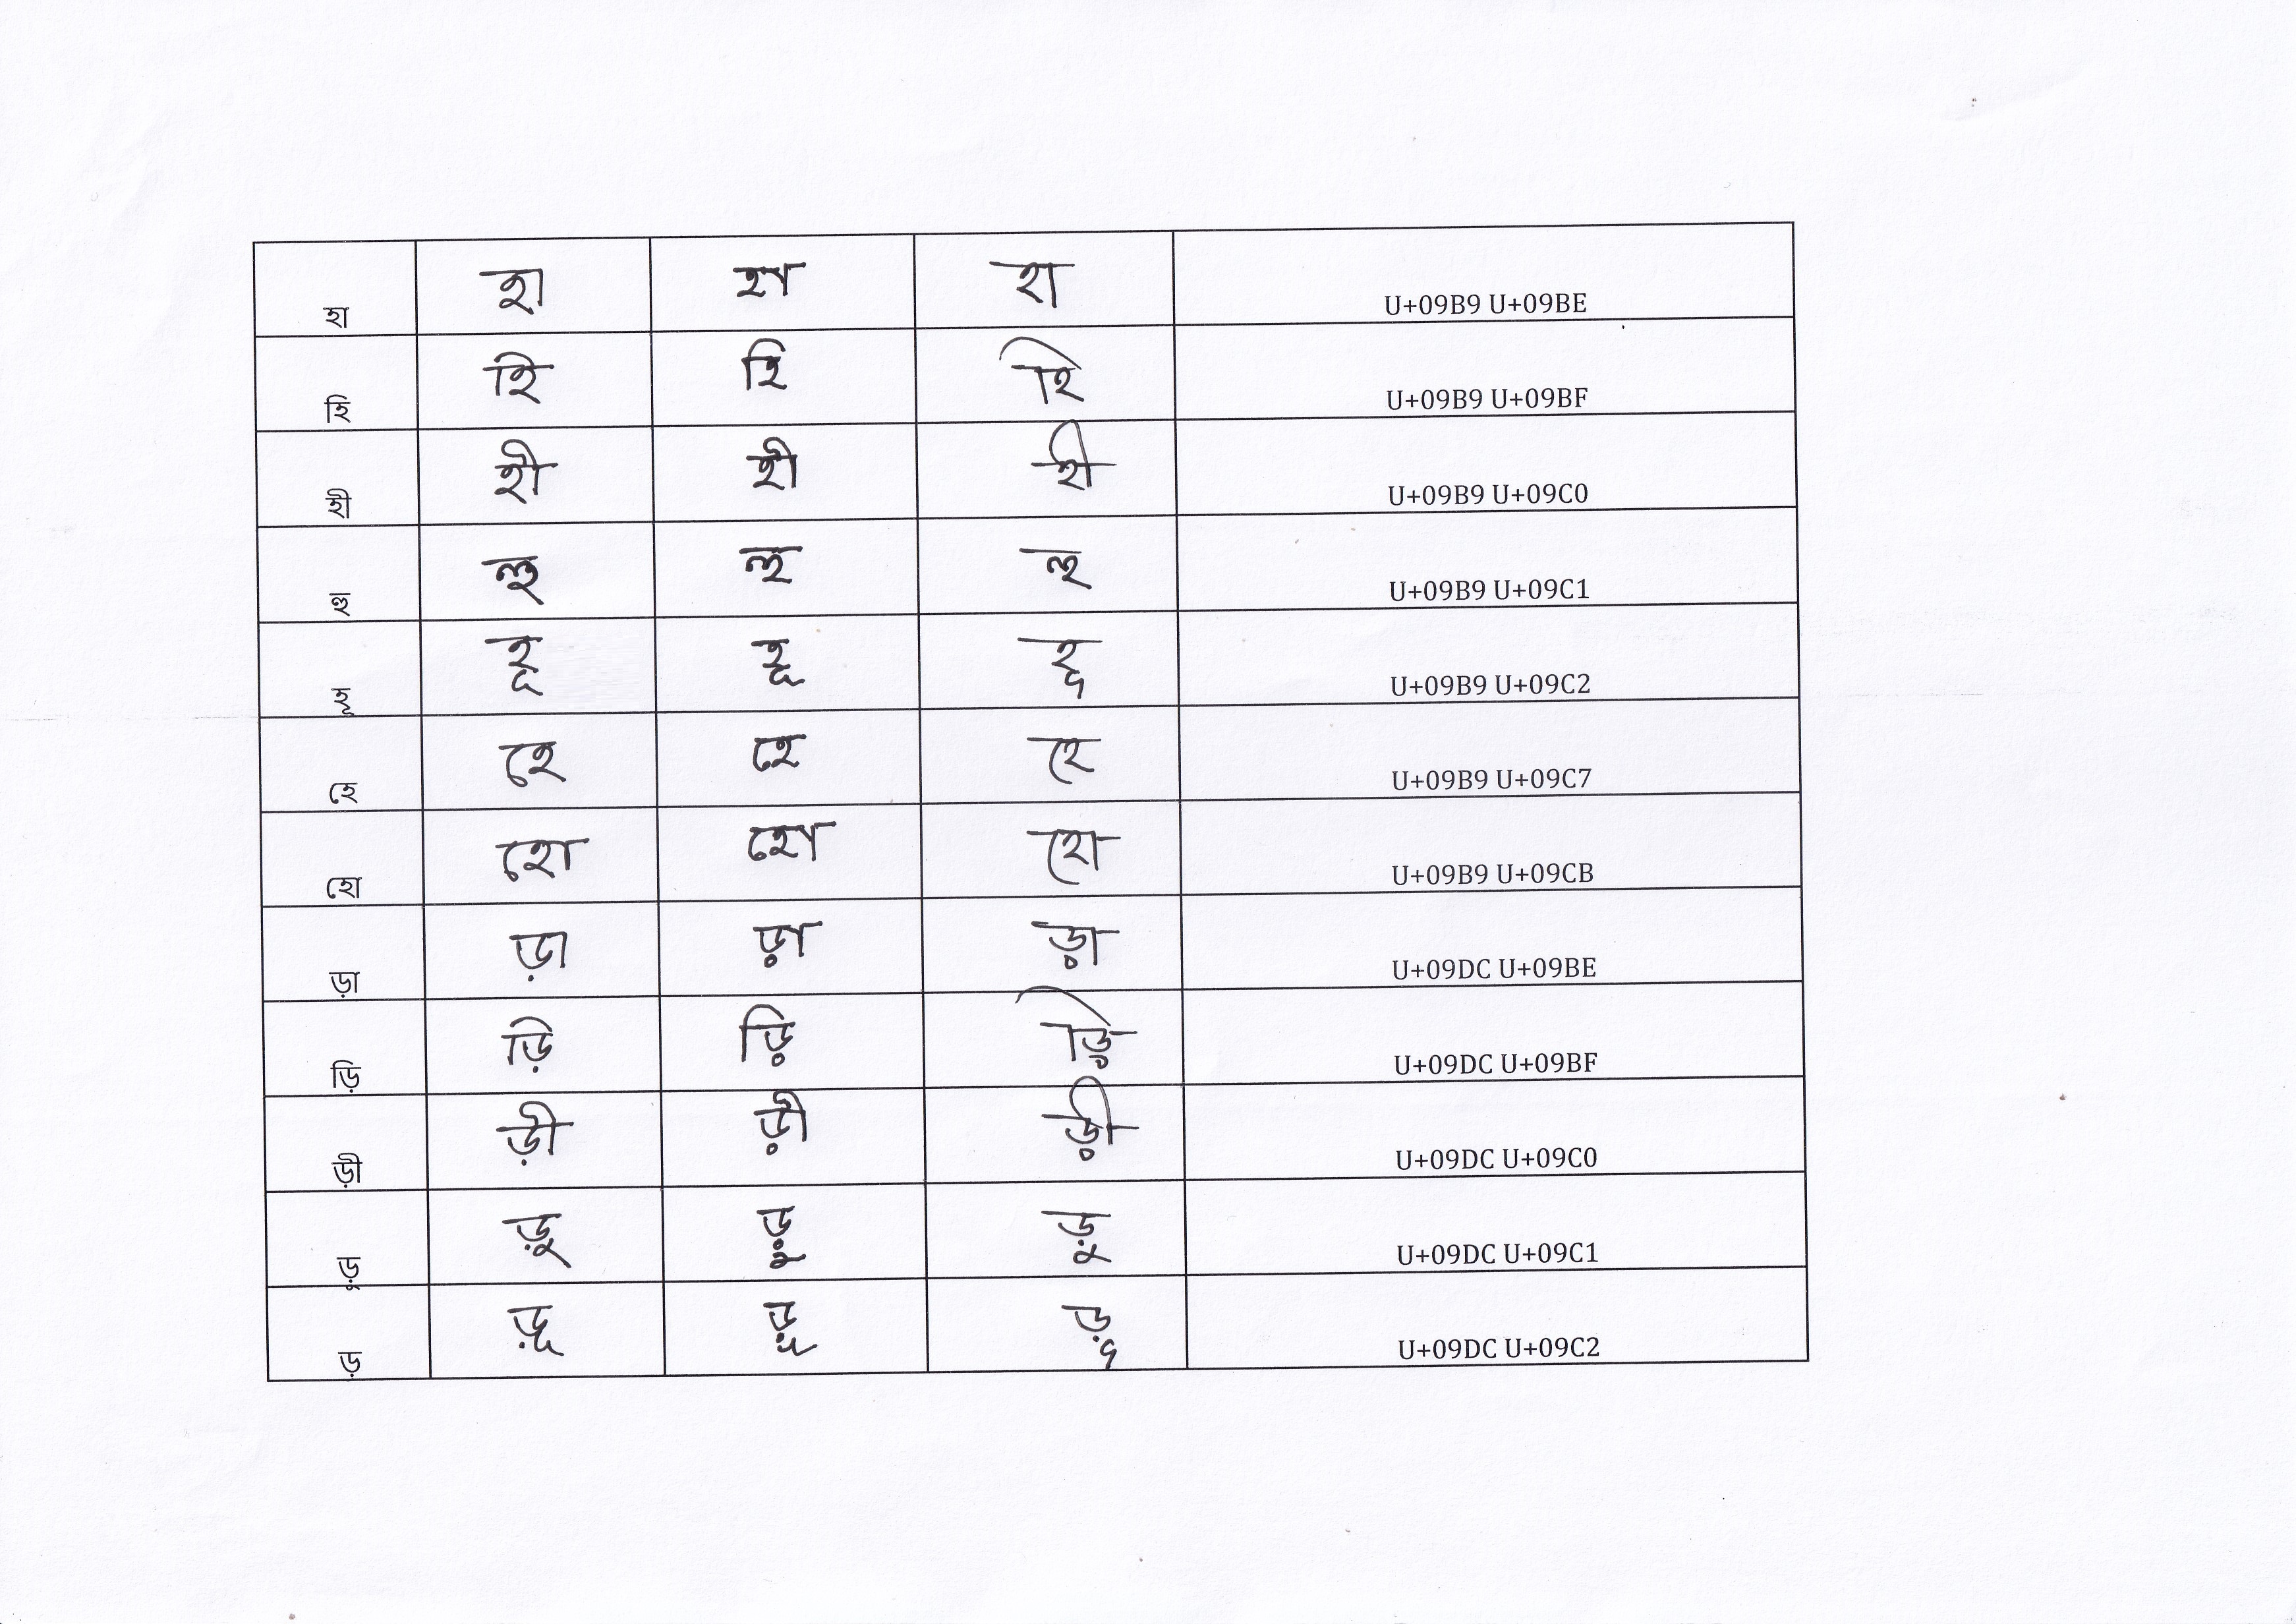 হা হা হা হা U+09B9 U+09BE
হি হি হি হি U+09B9 U+09BF
হী হী হী হী U+09B9 U+09C0
হু হু হু হু U+09B9 U+09C1
হূ হূ হূ হূ U+09B9 U+09C2
হে হে হে হে U+09B9 U+09C7
হো হো হো হো U+09B9 U+09CB
ড়া ড়া ড়া ড়া U+09DC U+09BE
ড়ি ড়ি ড়ি ড়ি U+09DC U+09BF
ড়ী ড়ী ড়ী ড়ী U+09DC U+09C0
ড়ু ড়ু ড়ু ড়ু U+09DC U+09C1
ড় ড়ূ ড়ূ ড়ূ U+09DC U+09C2